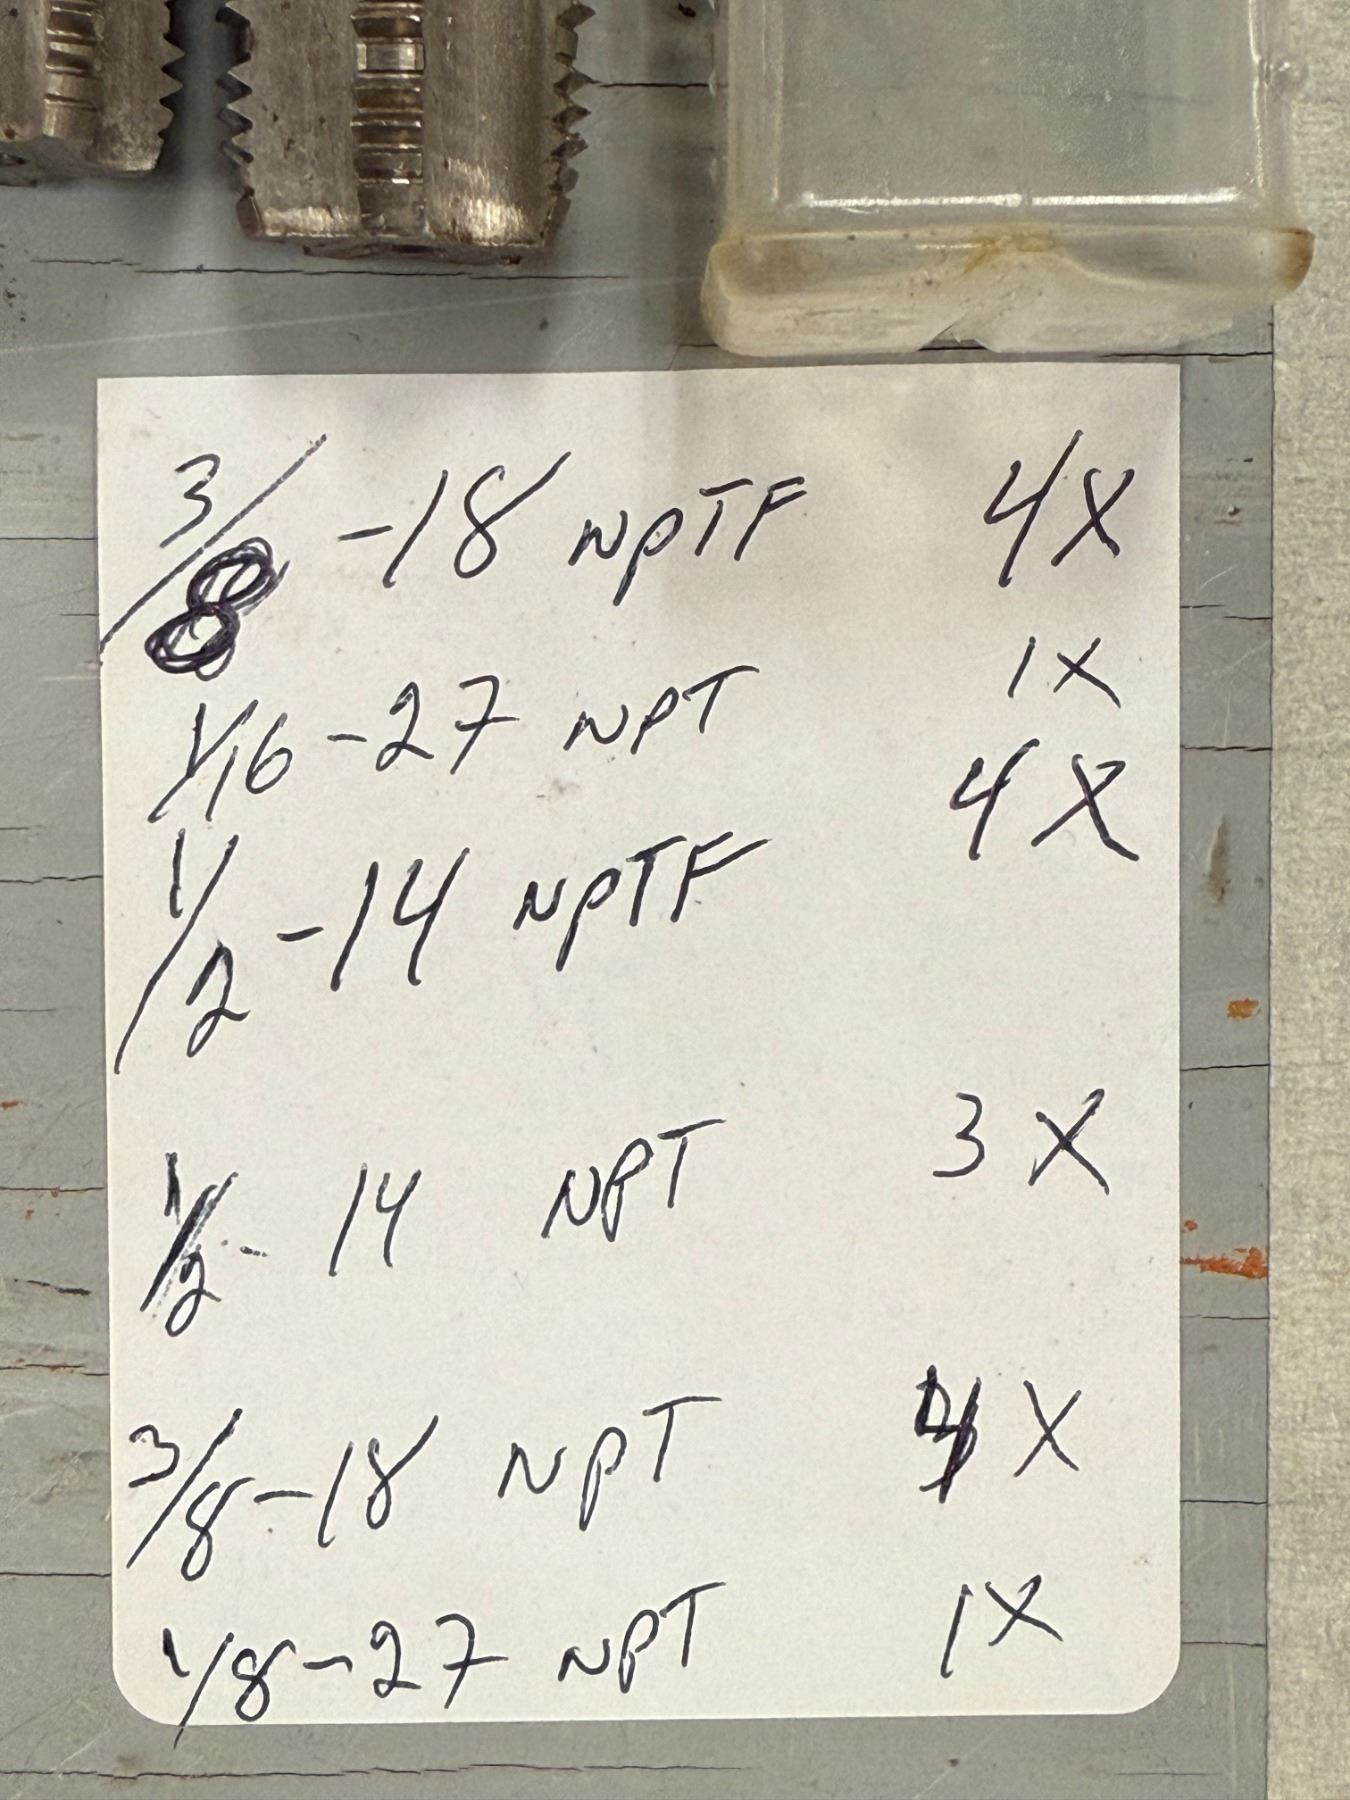 3/8 -18 NPTF 4X
1/16 -27 NPT 1X
1/2 -14 NPTF 4X
1/2 - 14 NPT 3X
3/8 -18 NPT 4X
1/8 -27 NPT 1X